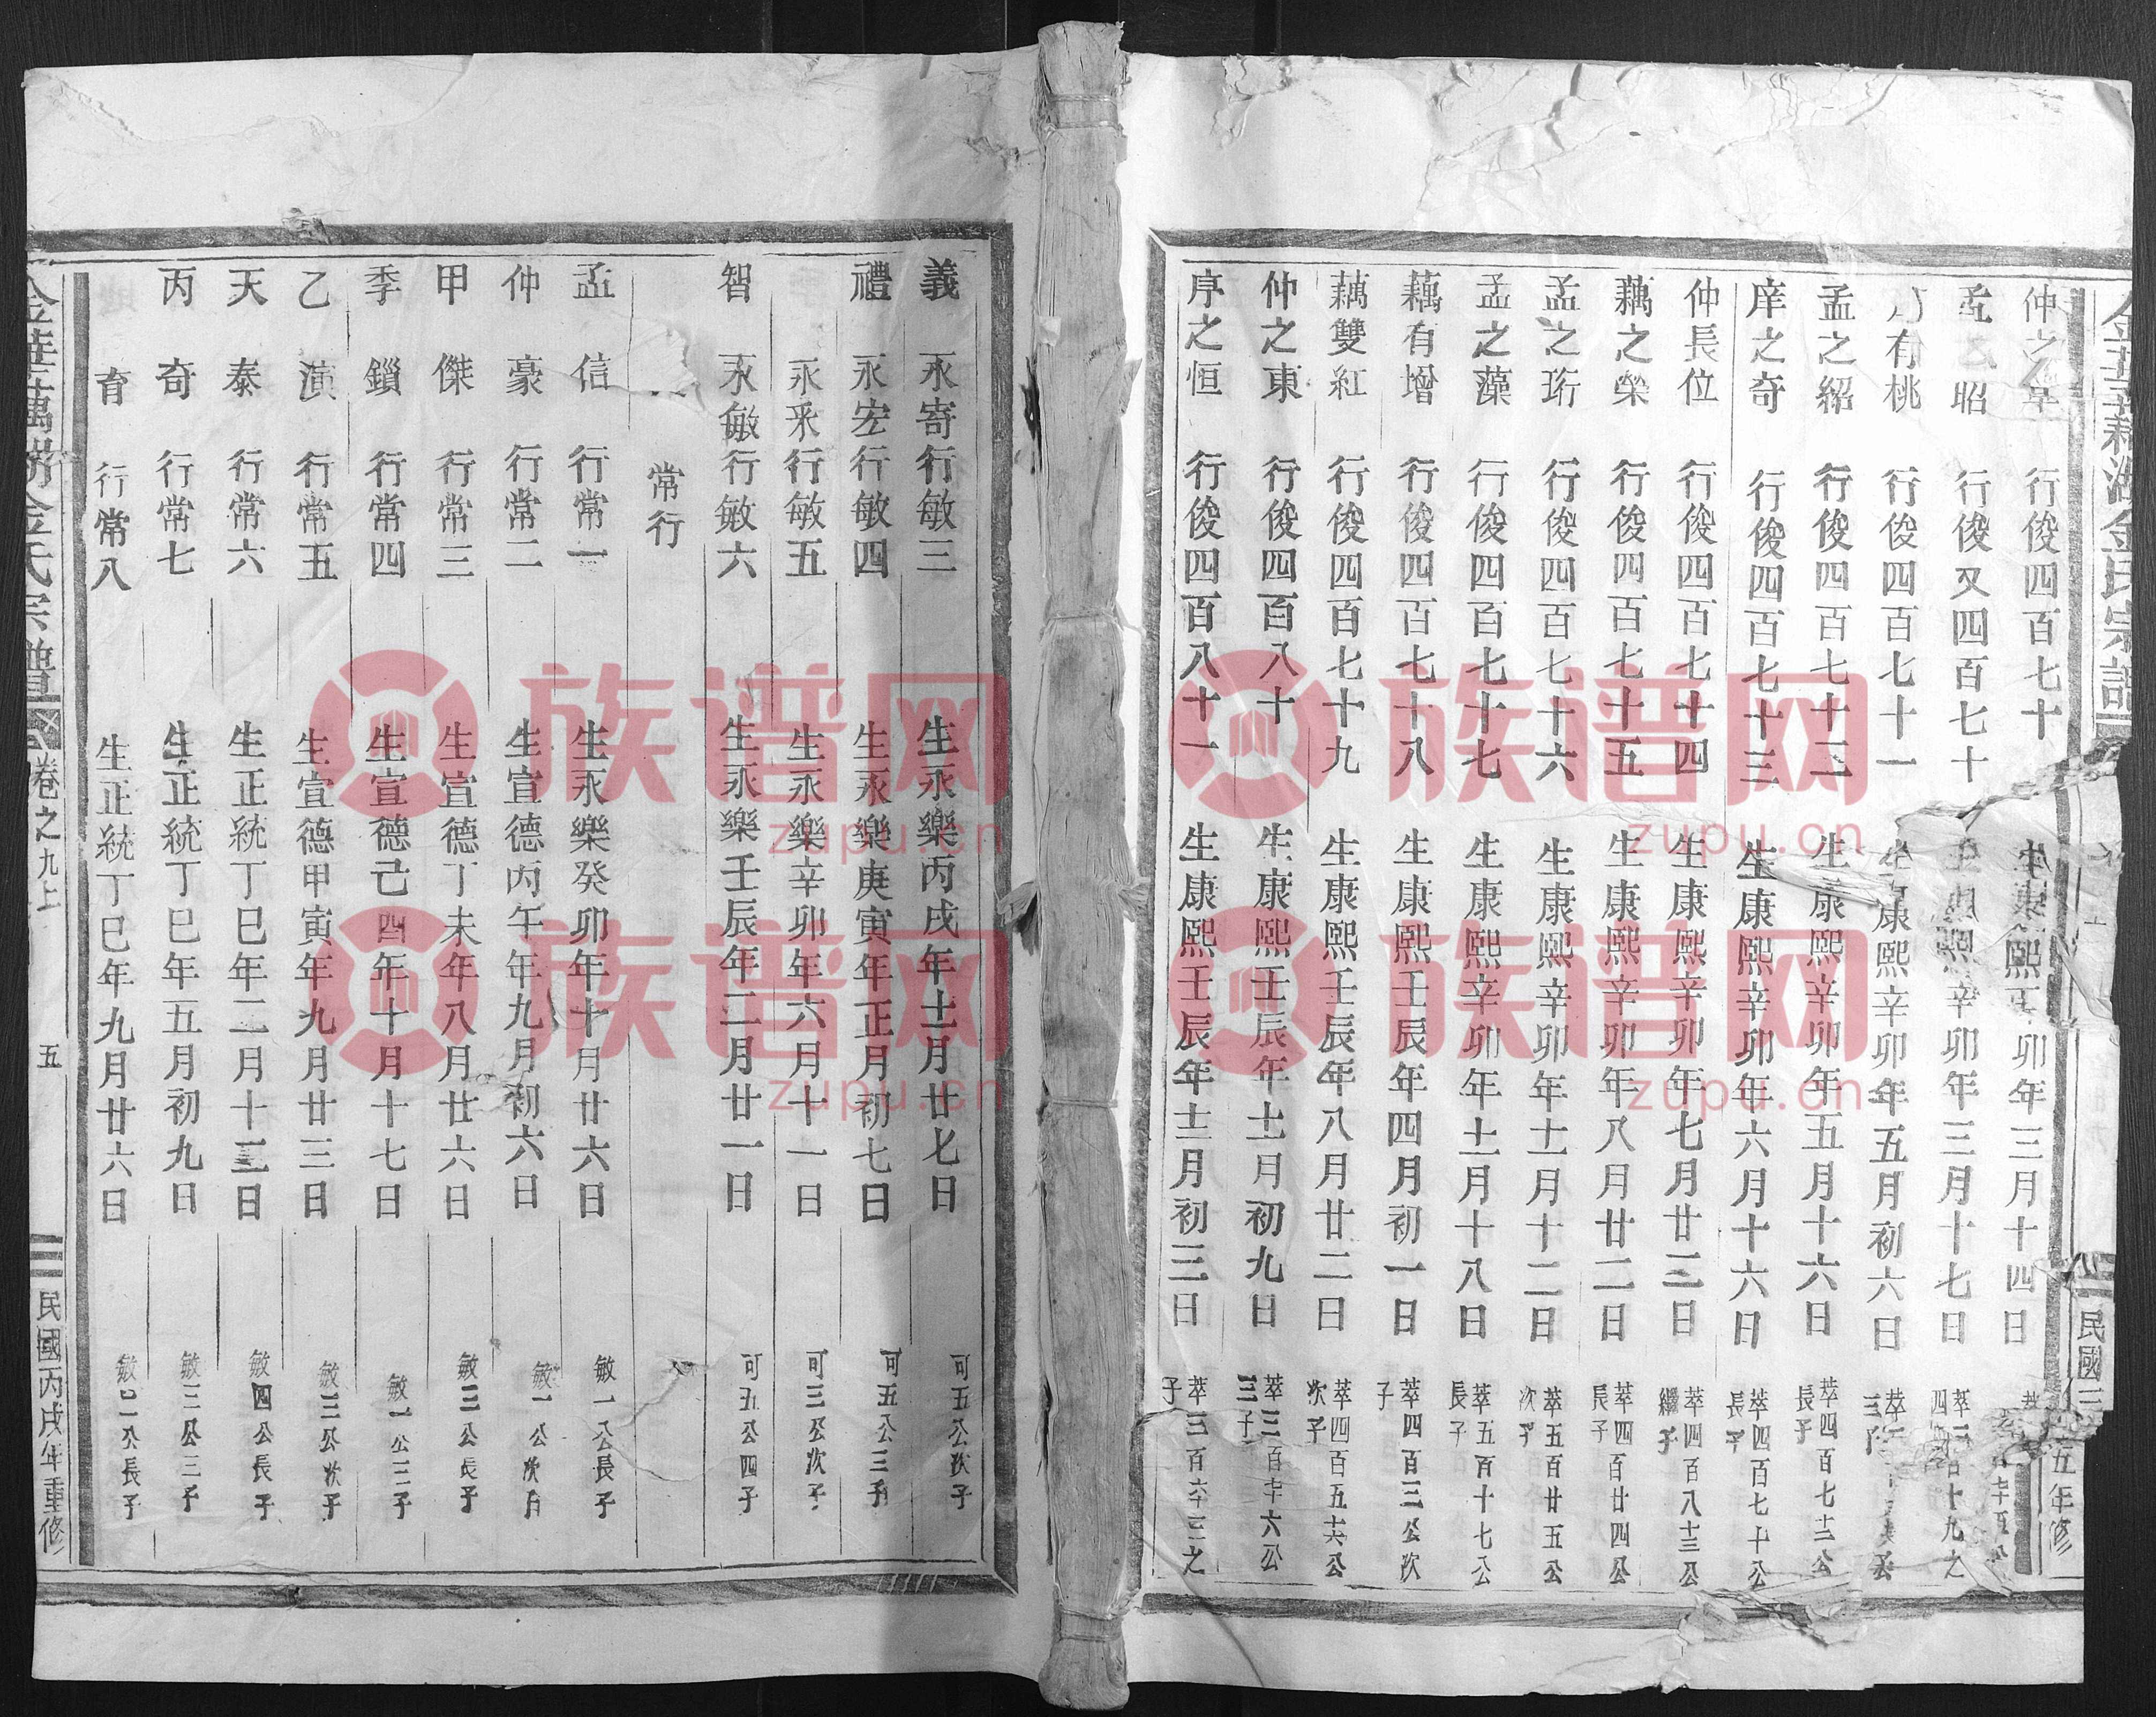 金華藕湖金氏宗譜
民國三 五年修
仲之 行俊四百七十 生康熙 卯年三月十四日
昭 行俊又四百七十 生康熙辛卯年三月十七日
有桃 行俊四百七十一 生康熙辛卯年五月初六日
孟之紹 行俊四百七十二 生康熙辛卯年五月十六日 萃四百七十二公長子
庠之奇 行俊四百七十三 生康熙辛卯年六月十六日 萃四百七十公長子
仲長位 行俊四百七十四 生康熙辛卯年七月廿三日 萃四百八十三公繼子
藕之榮 行俊四百七十五 生康熙辛卯年八月廿二日 萃四百廿四公長子
孟之珩 行俊四百七十六 生康熙辛卯年十一月十二日 萃五百廿五公次子
孟之藻 行俊四百七十七 生康熙辛卯年十一月十八日 萃五百十七公長子
藕有增 行俊四百七十八 生康熙壬辰年四月初一日 萃四百三公次子
藕雙紅 行俊四百七十九 生康熙壬辰年八月廿二日 萃四百五十六公次子
仲之東 行俊四百八十 生康熙壬辰年十一月初九日 萃三百七十六公三子
序之恒 行俊四百八十一 生康熙壬辰年十二月初三日 萃三百六十三之子
義 永寄 行敏三 生永樂丙戌年十一月廿七日 可五公次子
禮 永宏 行敏四 生永樂庚寅年正月初七日 可五公三子
永釆 行敏五 生永樂辛卯年六月十一日 可三公次子
智 永敏 行敏六 生永樂壬辰年二月廿一日 可五公四子
常行
孟 信 行常一 生永樂癸卯年十月廿六日 敏一公長子
仲 豪 行常二 生宣德丙午年九月初六日 敏一公次子
甲 傑 行常三 生宣德丁未年八月廿六日 敏三公長子
季 鎻 行常四 生宣德己酉年十月十七日 敏一公三子
乙 演 行常五 生宣德甲寅年九月廿三日 敏三公次子
天 泰 行常六 生正統丁巳年二月十三日 敏四公長子
丙 奇 行常七 生正統丁巳年五月初九日 敏三公三子
育 行常八 生正統丁巳年九月廿六日 敏二公長子
金華藕湖金氏宗譜 卷之九上 五 民國丙戌年重修
族谱网
zupu.cn
族谱网
zupu.cn
族谱网
zupu.cn
族谱网
zupu.cn